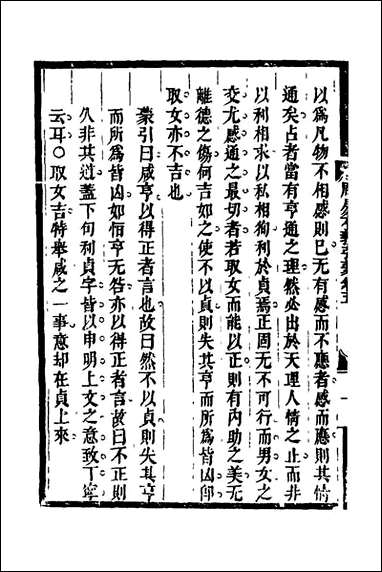 以爲凡物不相感則已无有感而不應者感而應則其情
通矣占者當有亨通之理然必出於天理人情之止而非
以利相求以私相徇利於貞焉正固无不可行而男女之
交尤感通之最切者若取女而能以正則有內助之美无
離德之傷何吉如之使不以貞則失其亨而所爲皆凶卽
取女亦不吉也
蒙引曰咸亨以得正者言也故曰然不以貞則失其亨
而所爲皆凶如恒亨无咎亦以得正者言故曰不正則
久非其道蓋下句利貞字皆以申明上文之意致丁寧
云耳○取女吉特舉咸之一事意却在貞上來